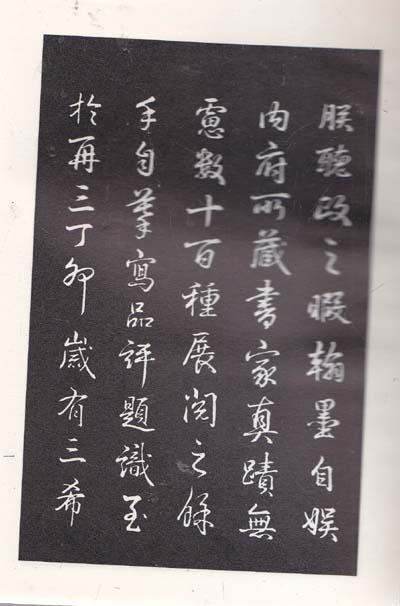 朕聽政之暇翰墨自娛
内府所藏書家真蹟無
慮數十百種展閱之餘
手自摹寫品評題識至
於再三丁卯歲有三希